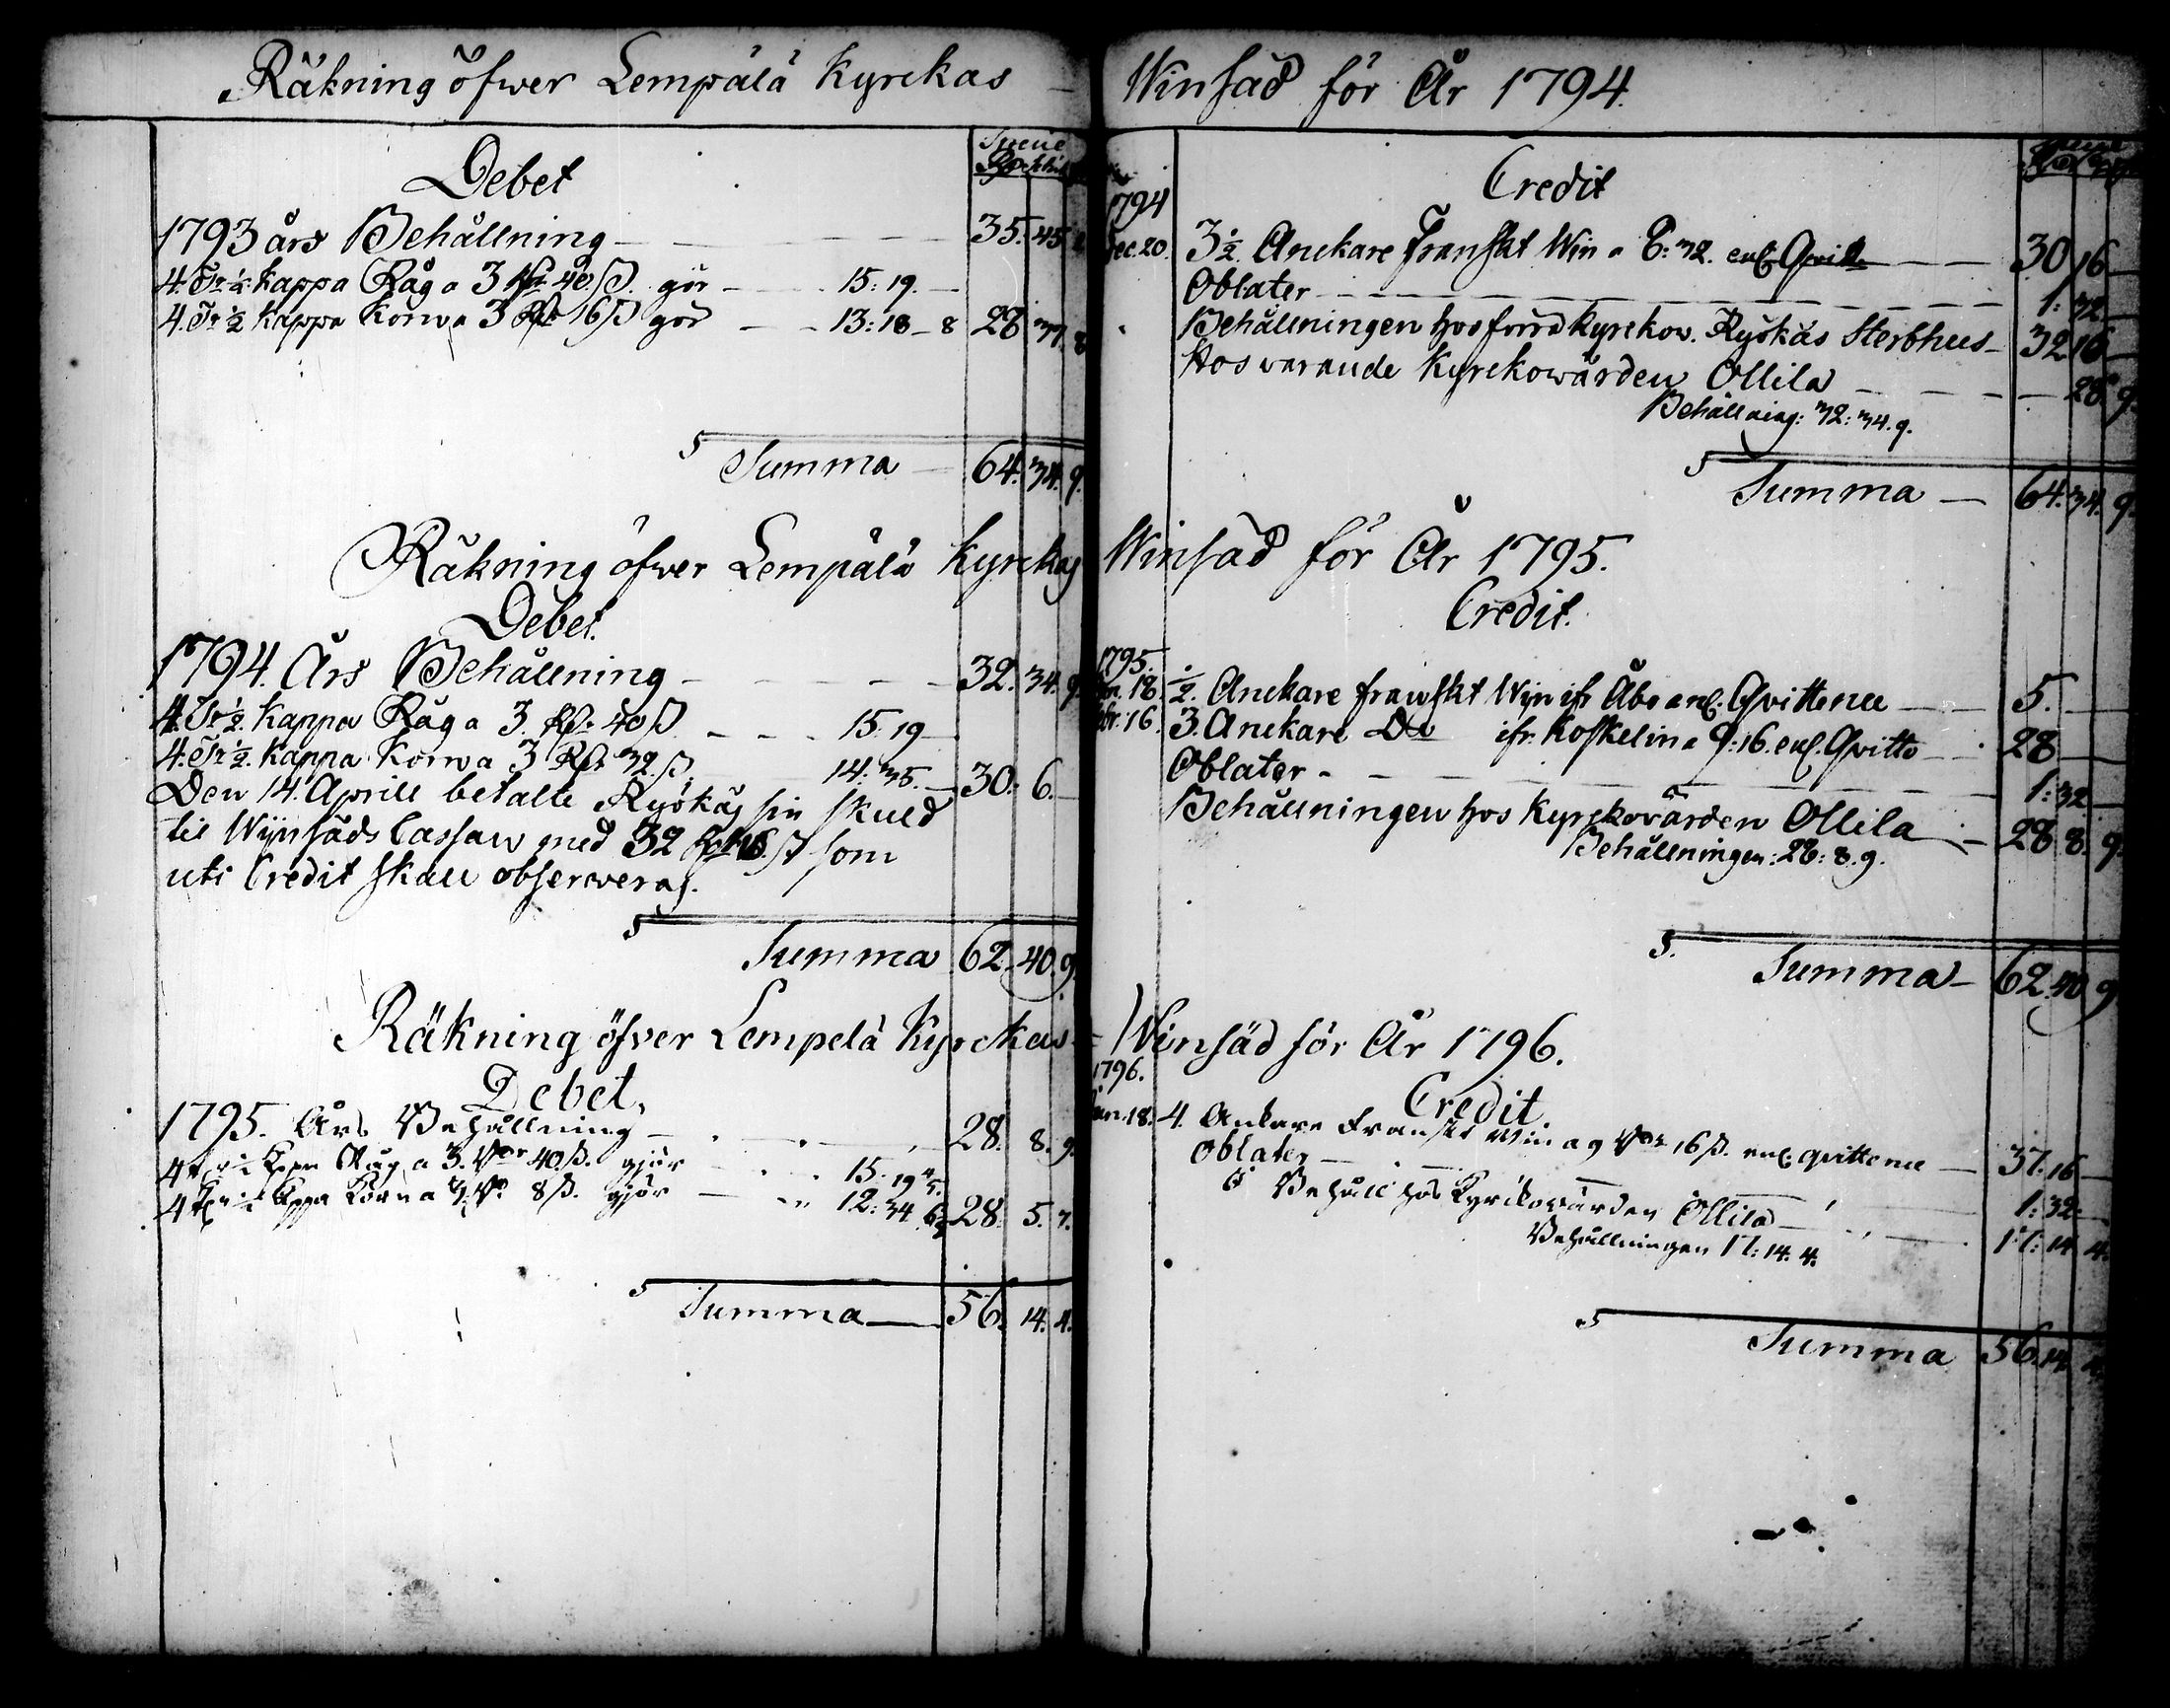 Räkning öfwer Lempälä Kyrckas
Specie
Debet
1793 års Behållning 35. 45
4. Tr ½ kappa Råg a 3 Rd 40 ß. gör 15: 19.
4. Tr ½ kappa Korn a 3 Rdr 16 ß gör 13: 18 8 28 37 8
Summa 64. 34. 9.
Räkning öfwer Lempälä Kyrckas
Debet.
1794. Års Behållning 32. 34. 9.
4. Tr ½. kappa Råg a 3. Rdr 40 ß. 15. 19
4. Tr ½. kappa Korn a 3 Rdr 32. ß. 14. 35. 30. 6.
Den 14. Aprill betalte Ryökäs sin skuld
til Wijnsäds Cassan med 32 Rd 16 ß som
uti Credit skall observeras.
Summa 62. 40. 9
Räkning öfver Lempelä Kyrckas
Debet,
1795. Års Behållning 28. 8. 9.
4 Tr ½ Kappa Råg a 3. Rdr 40 ß. gjör 15: 19
4 Tr ½ Kappa Korn a Rd 8 ß. gjör 12: 34 28. 5. 7.
Summa 56. 14. 4.
Winsäd för År 1794.
Credit
1794
Dec. 20. 3 ½. Anckare Franskt Win a 8: 32. enl. Qvitt. 30 16
Oblater 1: 32
Behållningen hos förra kyrckow. Ryökäs Sterbhus 32 16
Hos warande Kyrckowärden Ollila 28 9.
Behållning: 32: 34. 9.
Summa 64. 34. 9.
Winsäd för År 1795.
Credit.
1795.
18 ½. Anckare franskt Wijn ifr Åbo enl. Qvittence 5.
16. 3. Anckare Do ifr. Koskelin a 9: 16. enl. Qvitto 28
Oblater 1: 32
Behållningen hos Kyrckovärden Ollila 28 8. 9.
Behållningen: 28: 8. 9.
Summa 62. 40 9
Winsäd för År 1796.
1796.
Credit
Jan. 18. 4. Ankare Franskt Win a 9 Rdr 16 ß. enl. qvittence 37. 16
Oblater 1: 32.
Behåll. hos Kyrckowärden Ollila 17: 14 4.
Behållningen 17: 14. 4.
Summa 56. 14